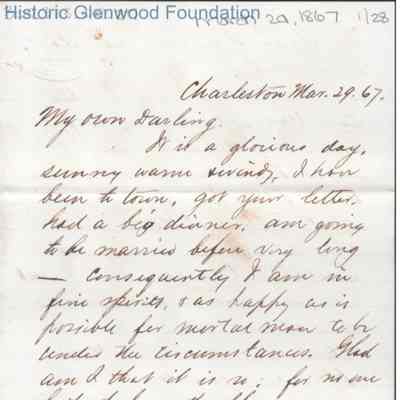 Historic Glenwood Foundation
March 29, 1867 1/28
Charleston Mar. 29. 67.
My own Darling.
It is a glorious day,
sunny warm & windy, I have
been to town, got your letter,
had a big dinner, am going
to be married before very long
— consequently I am in
fine spirits, & as happy as is
possible for mortal man to be
under the circumstances. Glad
am I that it is so; for no one